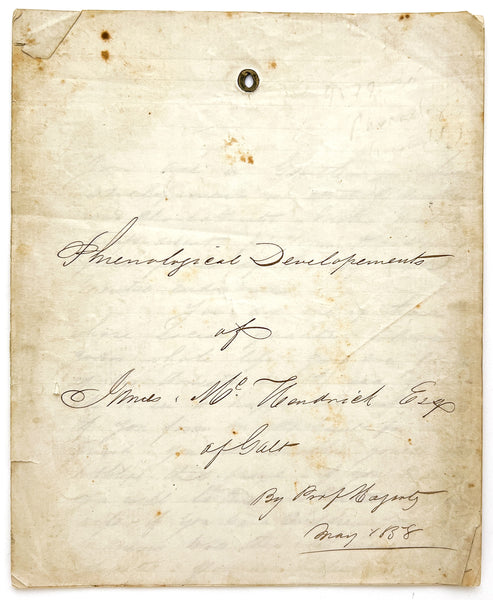 Phrenological Developements
of
James Mc Kendrick Esq
of Galt
By Prof Hagarty
May 1858